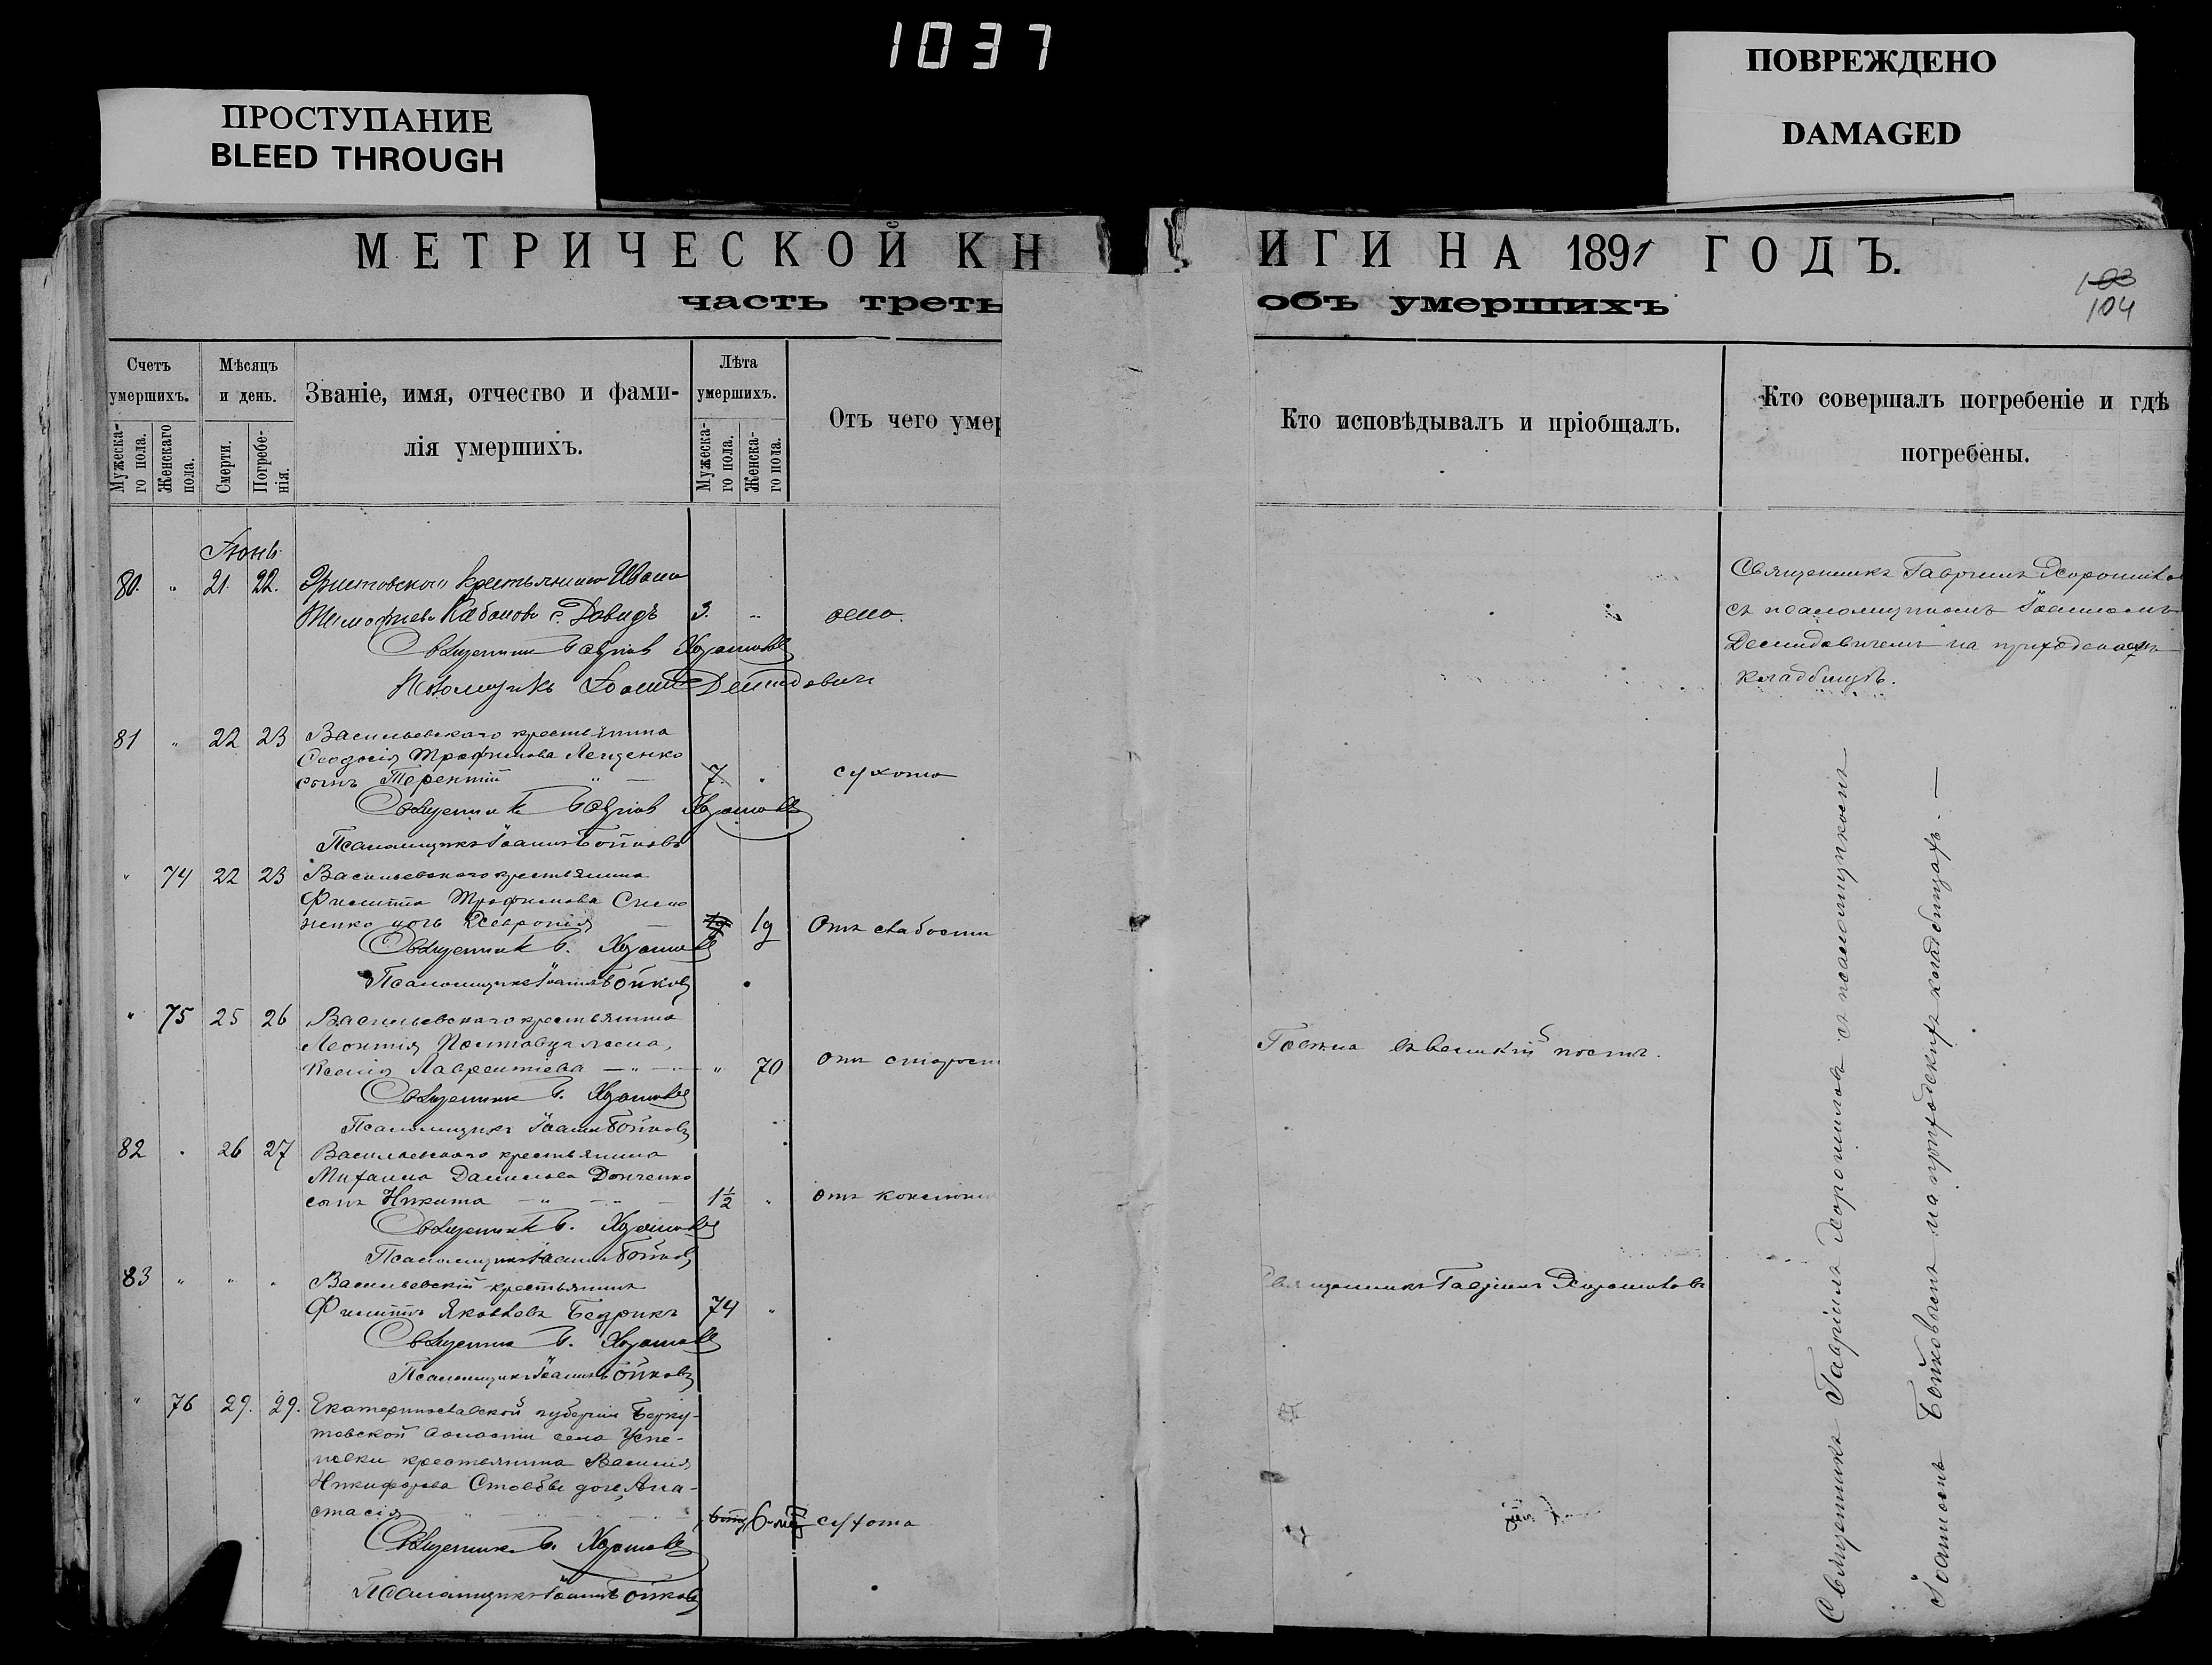 1037
ПРОСТУПАНИЕ
BLEED THROUGH
ПОВРЕЖДЕНО
DAMAGED
МЕТРИЧЕСКОЙ КН ИГИ НА 1891 ГОДЪ.
часть треть объ умершихъ
103
104
Счетъ умершихъ.
Мужеска-го пола.
Женскаго пола.
Мѣсяцъ и день.
Смерти.
Погребе-нія.
Званіе, имя, отчество и фами-
лія умершихъ.
Лѣта умершихъ.
Мужеска-го пола.
Женска-го пола.
Отъ чего умер
Кто исповѣдывалъ и пріобщалъ.
Кто совершалъ погребеніе и гдѣ
погребены.
Іюнь
80. " 21. 22. крестьянина Ивана
Тимофеева Кабанова с. Давидъ 3. " оспа.
Священникъ Гавріилъ Хорошиловъ
Псаломщикъ Іоаннъ Демидовичъ
Священникъ Гавріилъ Хорошиловъ
съ псаломщикомъ Іоанномъ
Демидовичемъ на приходскомъ
кладбищѣ.
81 " 22 23 Васильевскаго крестьянина
Феодосія Трофимова Лещенко
сынъ Терентій 7. " сухота
Священникъ Гавріилъ Хорошиловъ
Псаломщикъ Іоаннъ Бойковъ
" 74 22 23 Васильевскаго крестьянина
Филиппа Трофимова Симо
ненко дочь Февронія 19 Отъ слабости
Священникъ Г. Хорошиловъ
Псаломщикъ Іоаннъ Бойковъ
" 75 25 26 Васильевскаго крестьянина
Леонтія жена,
Ксенія Лаврентіева " 70 отъ старост
Священникъ Г. Хорошиловъ
Псаломщикъ Іоаннъ Бойковъ
Говѣла въ великій постъ.
82 " 26 27 Васильевскаго крестьянина
Михаила Данилова Донченко
сынъ Никита 1½ " отъ
Священникъ Г. Хорошиловъ
Псаломщикъ Іоаннъ Бойковъ
83 " " " Васильевскій крестьянинъ
Филиппъ Яковлевъ Бедрикъ 74 "
Священникъ Г. Хорошиловъ
Псаломщикъ Іоаннъ Бойковъ
Священникъ Гавріилъ Хорошиловъ
" 76 29. 29. Екатеринославской губерніи
волости села Успе-
новки крестьянина Василія
Никифорова дочь Ана-
стасія 6 мѣ сухота
Священникъ Г. Хорошиловъ
Псаломщикъ Іоаннъ Бойковъ
Священникъ Гавріилъ Хорошиловъ съ псаломщикомъ
Іоанномъ Бойковымъ на приходскихъ кладбищахъ. —